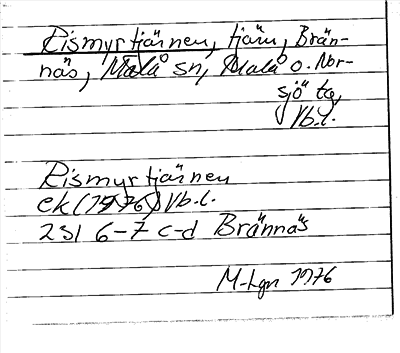 Rismyrtjärnen, tjärn, Brän-
näs, Malå sn, Malå o. Nor-
sjö tg,
Vb.l.
Rismyrtjärnen
ek (1976) Vb.l.
23I 6-7 c-d Brännäs
M-Lgn 1976